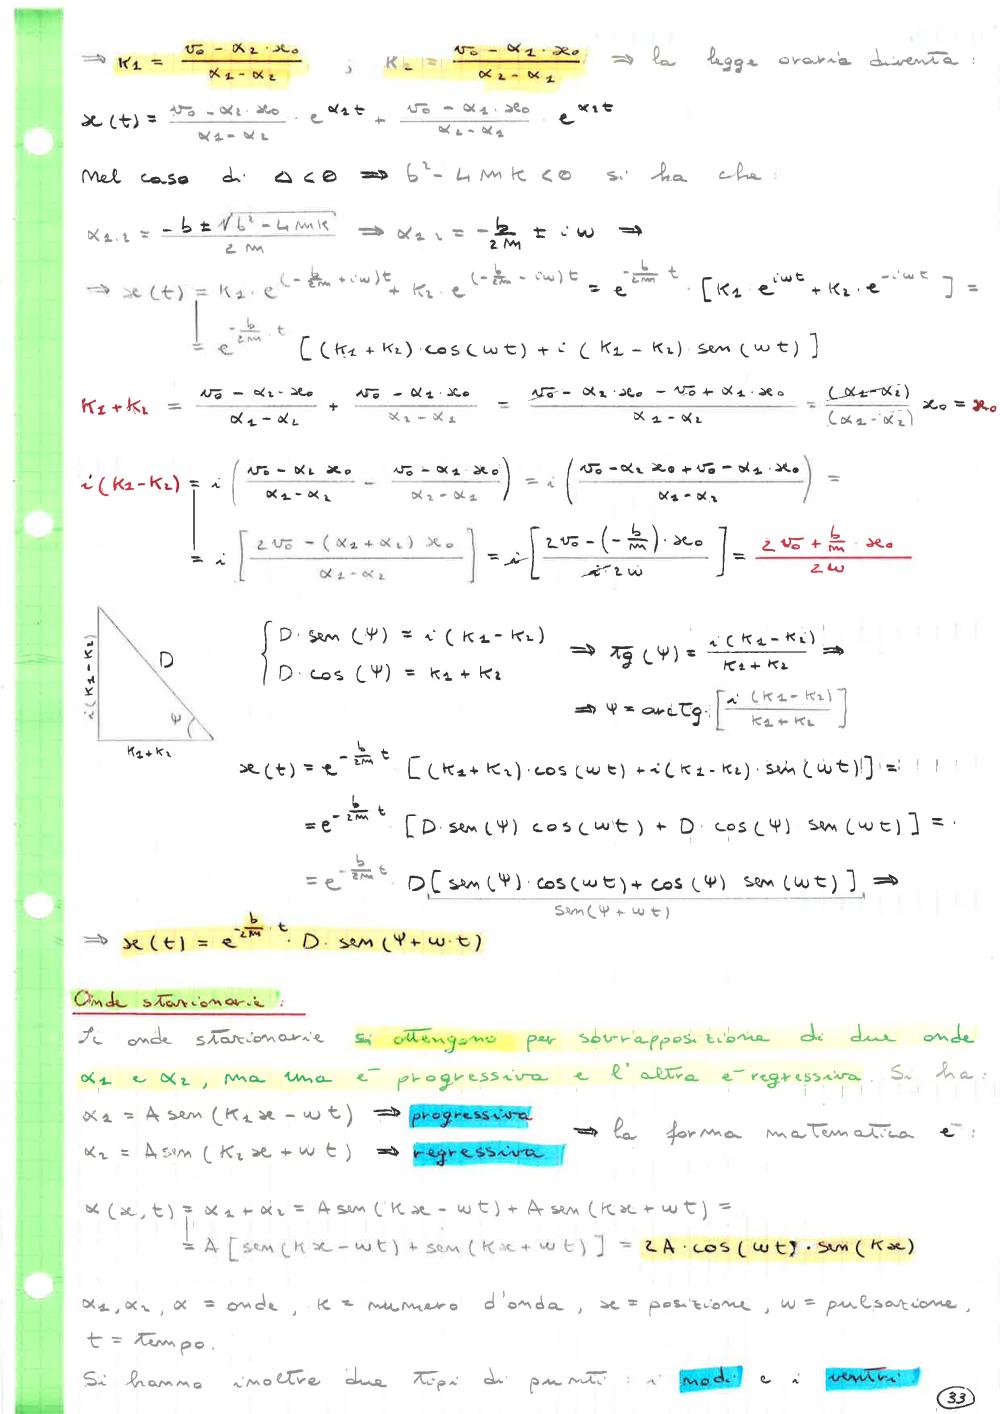 ⇒ K1 = (v0 - α2 · x0)/(α1 - α2) ; K2 = (v0 - α1 · x0)/(α2 - α1) ⇒ la legge oraria diventa:
x(t) = (v0 - α2 · x0)/(α1 - α2) · e^α1t + (v0 - α1 · x0)/(α2 - α1) · e^α2t
Nel caso di Δ<0 ⇒ b² - 4mK < 0 si ha che:
α1,2 = (-b ± √(b² - 4mK))/(2m) ⇒ α1,2 = -b/2m ± iω ⇒
⇒ x(t) = K1 · e^(-b/2m + iω)t + K2 · e^(-b/2m - iω)t = e^(-b/2m t) · [K1 e^iωt + K2 · e^-iωt] =
= e^(-b/2m · t) [(K1 + K2) · cos(ωt) + i (K1 - K2) · sen(ωt)]
K1 + K2 = (v0 - α2 · x0)/(α1 - α2) + (v0 - α1 · x0)/(α2 - α1) = (v0 - α2 · x0 - v0 + α1 · x0)/(α1 - α2) = (α1 - α2)/(α1 - α2) x0 = x0
i(K1 - K2) = i ((v0 - α2 x0)/(α1 - α2) - (v0 - α1 · x0)/(α2 - α1)) = i ((v0 - α2 x0 + v0 - α1 · x0)/(α1 - α2)) =
= i [(2v0 - (α1 + α2) x0)/(α1 - α2)] = i [(2v0 - (-b/m) · x0)/(i · 2ω)] = (2v0 + b/m · x0)/(2ω)
i(K1 - K2)
D
ψ
K1 + K2
{ D · sen(ψ) = i(K1 - K2)
D · cos(ψ) = K1 + K2
⇒ Tg(ψ) = i(K1 - K2)/(K1 + K2) ⇒
⇒ ψ = arcTg · [i (K1 - K2)/(K1 + K2)]
x(t) = e^(-b/2m t) [(K1 + K2) · cos(ωt) + i(K1 - K2) · sin(ωt)] =
= e^(-b/2m t) [D · sen(ψ) cos(ωt) + D · cos(ψ) sen(ωt)] =
= e^(-b/2m t) · D [sen(ψ) · cos(ωt) + cos(ψ) sen(ωt)] ⇒
sen(ψ + ωt)
⇒ x(t) = e^(-b/2m · t) · D · sen(ψ + ω · t)
Onde stazionarie:
Le onde stazionarie si ottengono per sovrapposizione di due onde
α1 e α2, ma una è progressiva e l'altra è regressiva. Si ha:
α1 = A sen(K1x - ωt) ⇒ progressiva
⇒ la forma matematica è:
α2 = A sen(K2x + ωt) ⇒ regressiva
α(x,t) = α1 + α2 = A sen(Kx - ωt) + A sen(Kx + ωt) =
= A [sen(Kx - ωt) + sen(Kx + ωt)] = 2A · cos(ωt) · sen(Kx)
α1, α2, α = onde, K = numero d'onda, x = posizione, ω = pulsazione,
t = tempo.
Si hanno inoltre due tipi di punti: i nodi e i ventri.
33